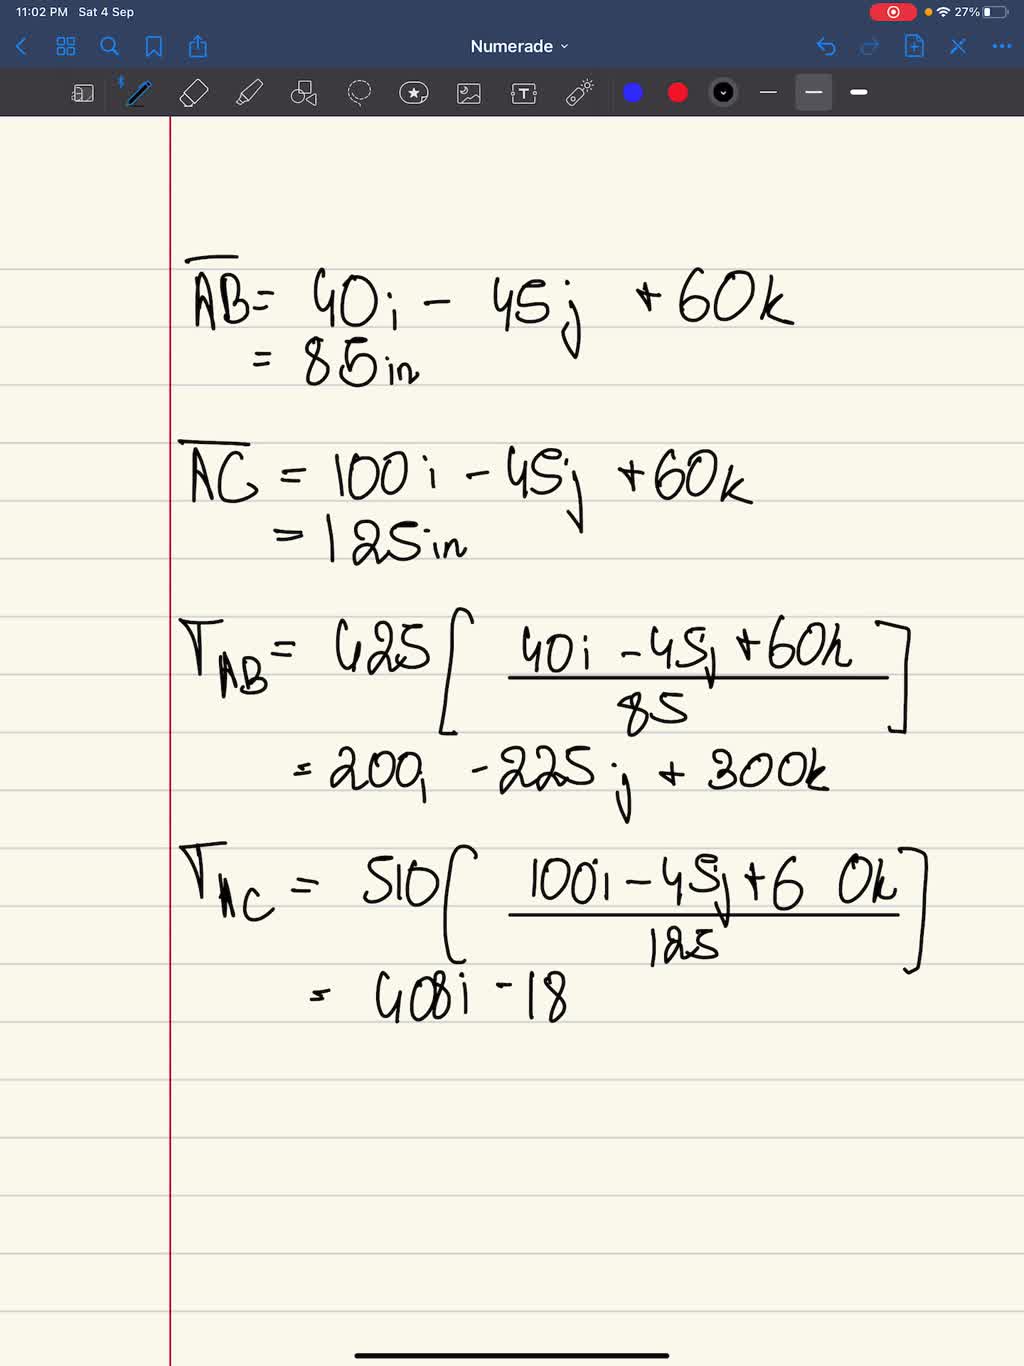 11:02 PM Sat 4 Sep 27%
Numerade
AB = 40i - 45j + 60k
= 85in
AC = 100i - 45j + 60k
= 125in
T AB = 425 [ 40i - 45j + 60k ]
85
= 200i - 225j + 300k
T AC = 510 [ 100i - 45j + 6 0k ]
125
= 408i - 18